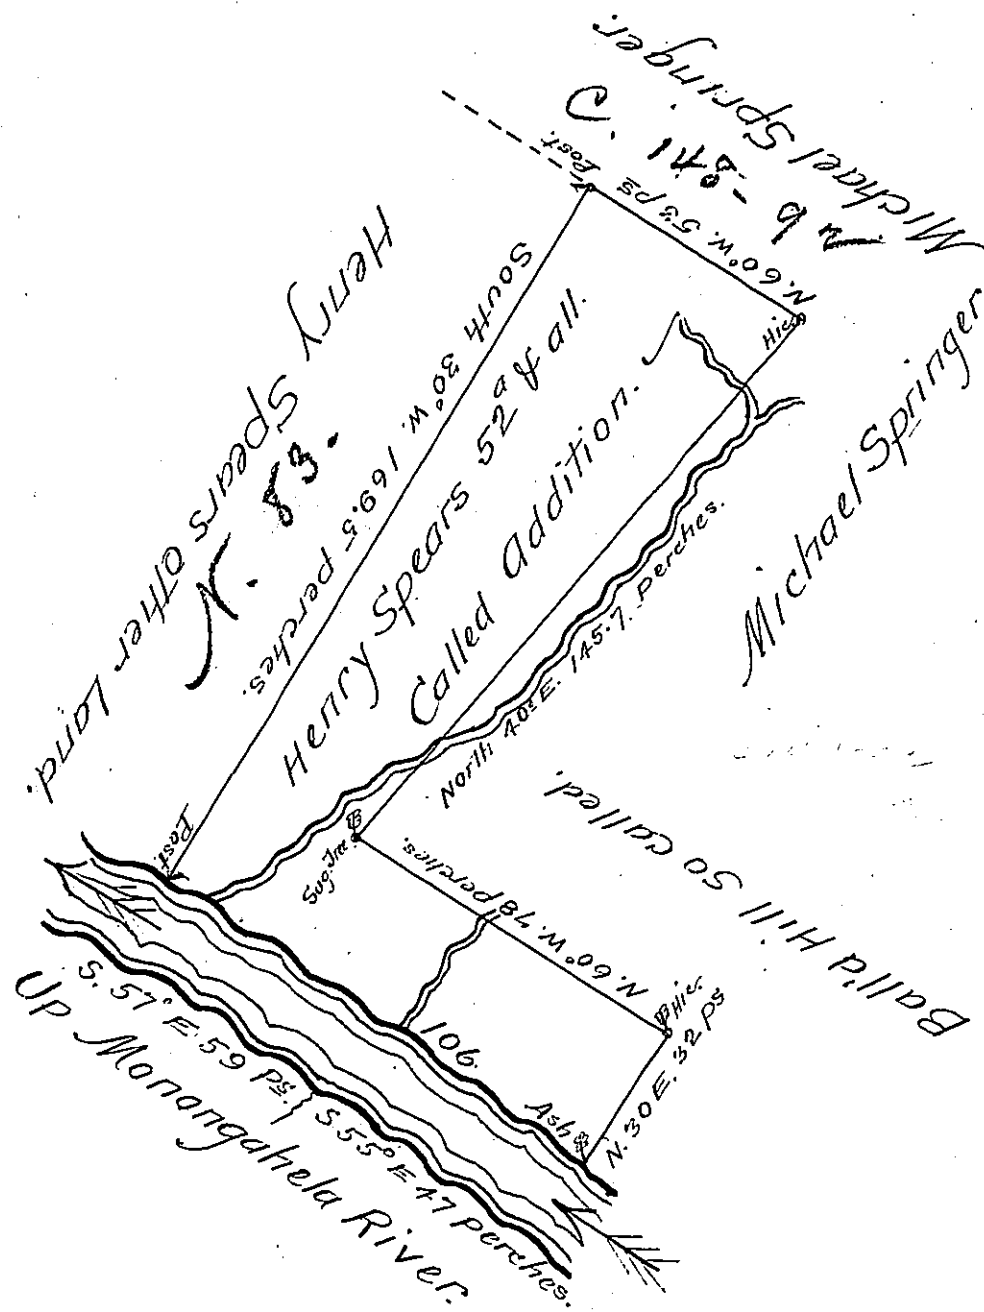 Michael Springer.
Post.
N. 60° W. 53 ps
Hic.
Henry Spears other Land.
N. 83.
South 30° W. 169.5 perches.
Henry Spears 52ª & all.
Called Addition.
Michael Springer
North 40° E. 145.7 perches.
Post.
Sug. Tree
N. 60° W. 78 perches.
Ball'd Hill So called.
Hic.
N. 30 E. 32 ps
Ash
106.
S. 57° E. 59 ps.
S. 55° E 47 perches.
Up Monongahela River.